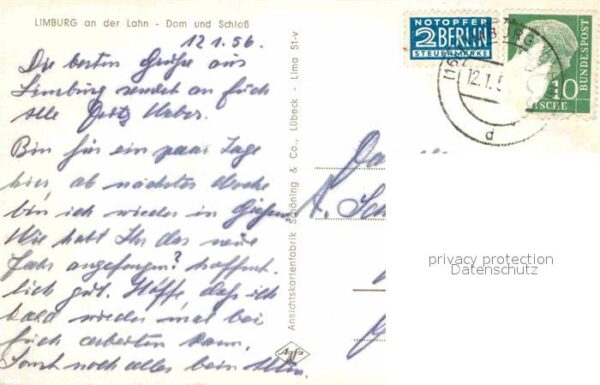 LIMBURG an der Lahn - Dom und Schloß
12.1.56.
Die besten Grüße aus
Limburg sendet an Euch
alle Fritz Weber.
Bin für ein paar Tage
hier, ab nächster Woche
bin ich wieder in Gießen.
Wie habt Ihr das neue
Jahr angefangen? hoffent-
lich gut. Hoffe daß ich
bald wieder mal bei
Euch arbeiten kann.
Sonst noch alles beim Alten.
Ansichtskartenfabrik Schöning & Co., Lübeck - Lima 51-v
Agfa
NOTOPFER
2 BERLIN
STEUERMARKE
LIMBURG
12.1.5
d
10
BUNDESPOST
privacy protection
Datenschutz